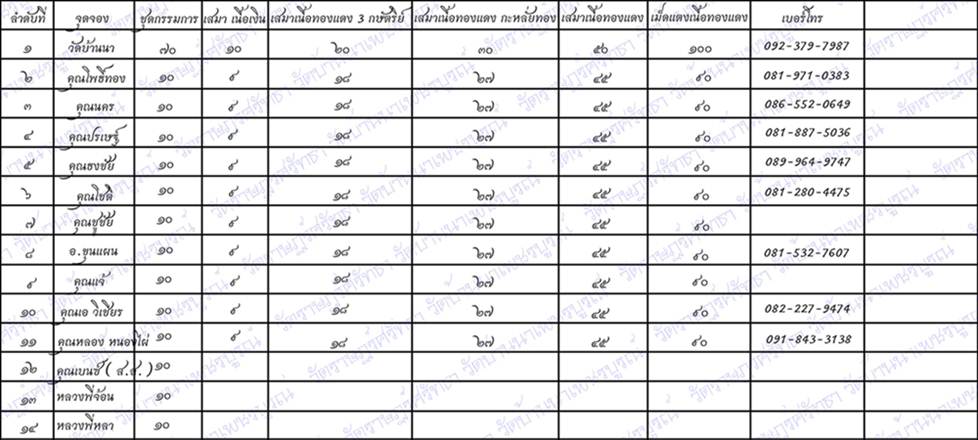 ลำดับที่ จุดจอง ชุดกรรมการ เสมา เนื้อเงิน เสมาเนื้อทองแดง 3 กษัตริย์ เสมาเนื้อทองแดง กะหลั่ยทอง เสมาเนื้อทองแดง เม็ดแตงเนื้อทองแดง เบอร์โทร
๑ วัดบ้านนา ๗๐ ๑๐ ๒๐ ๓๐ ๕๐ ๑๐๐ 092-379-7987
๒ คุณโพธิ์ทอง ๑๐ ๙ ๑๘ ๒๗ ๔๕ ๙๐ 081-971-0383
๓ คุณนคร ๑๐ ๙ ๑๘ ๒๗ ๔๕ ๙๐ 086-552-0649
๔ คุณปรเษฐ์ ๑๐ ๙ ๑๘ ๒๗ ๔๕ ๙๐ 081-887-5036
๕ คุณธงชัย ๑๐ ๙ ๑๘ ๒๗ ๔๕ ๙๐ 089-964-9747
๖ คุณโชติ ๑๐ ๙ ๑๘ ๒๗ ๔๕ ๙๐ 081-280-4475
๗ คุณชูชัย ๑๐ ๙ ๑๘ ๒๗ ๔๕ ๙๐
๘ อ.ขุนแผน ๑๐ ๙ ๑๘ ๒๗ ๔๕ ๙๐ 081-532-7607
๙ คุณแจ้ ๑๐ ๙ ๑๘ ๒๗ ๔๕ ๙๐
๑๐ คุณเอ วิเชียร ๑๐ ๙ ๑๘ ๒๗ ๔๕ ๙๐ 082-227-9474
๑๑ คุณหลอง หนองไผ่ ๑๐ ๙ ๑๘ ๒๗ ๔๕ ๙๐ 091-843-3138
๑๒ คุณเบนซ์ ( ส.ส. ) ๑๐
๑๓ หลวงพี่จ้อน ๑๐
๑๔ หลวงพี่หลา ๑๐